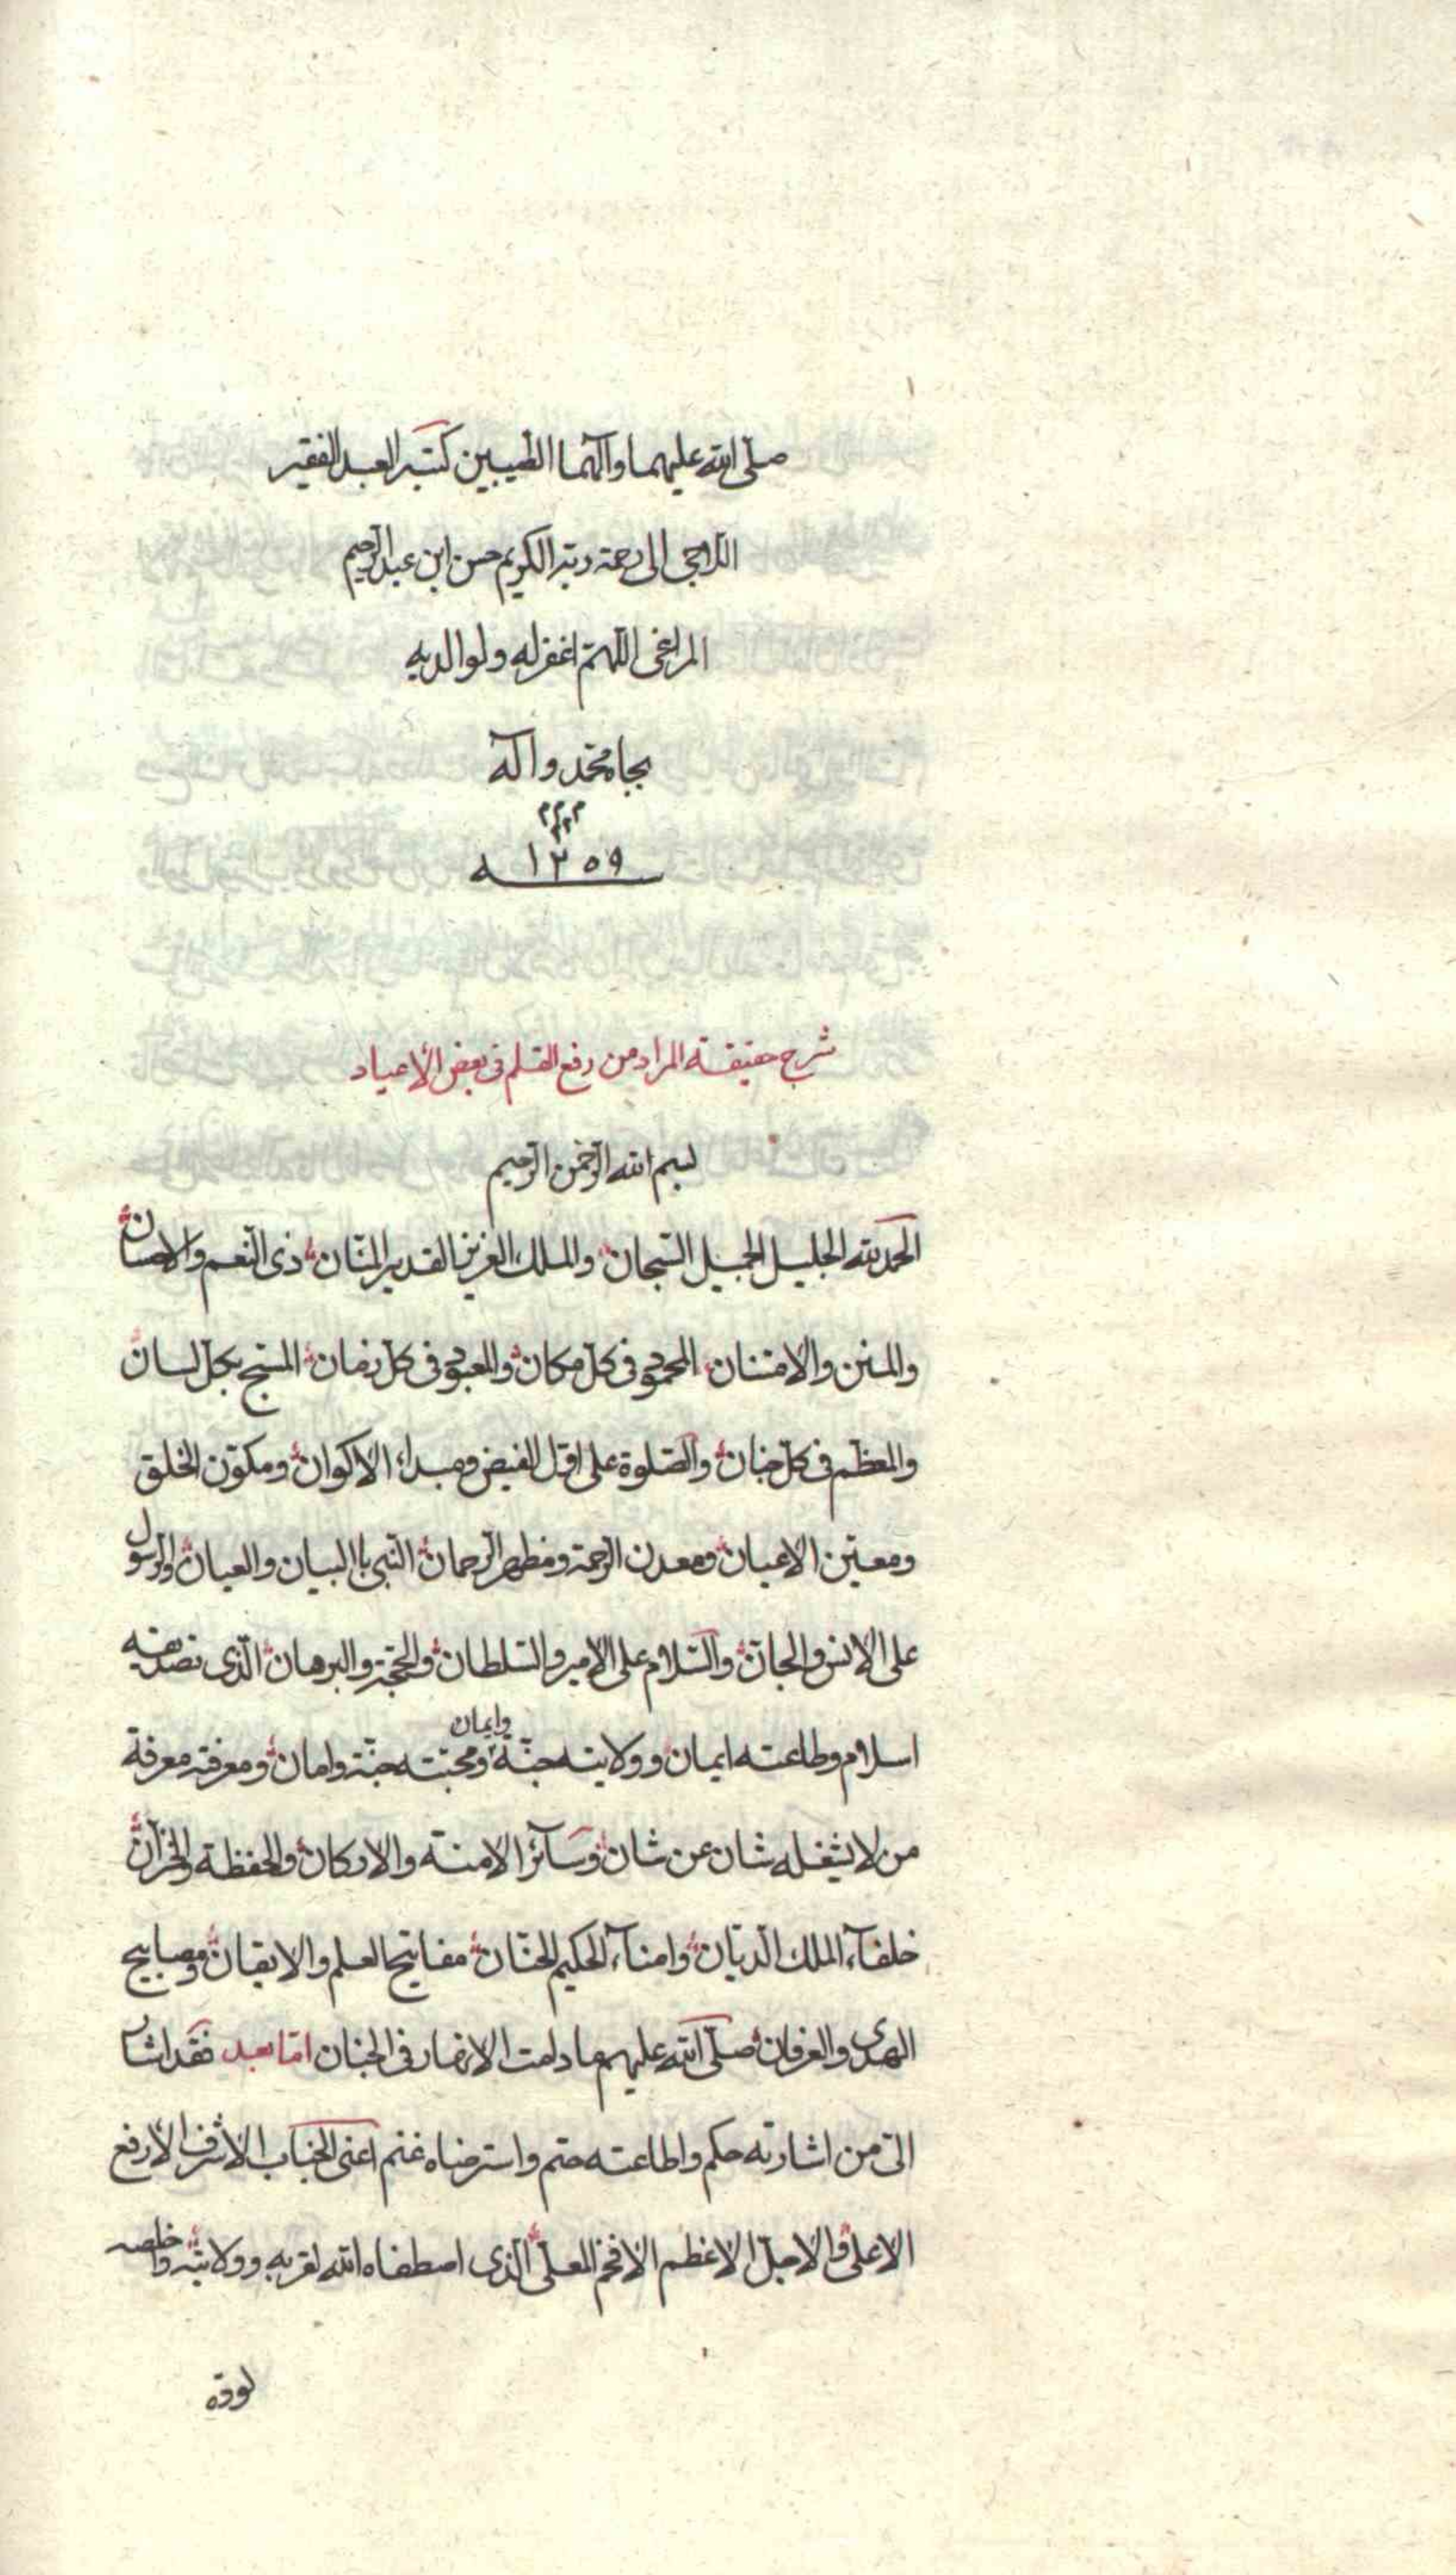 صلى الله عليهما وآلهما الطيبين كتبه العبد الفقير
اللاجى الى رحمة ربه الكريم حسن ابن عبدالرحيم
المراغى اللهم اغفر له ولوالديه
بجا محمد وآله
١٣٥٩
شرح حقيقة المراد من رفع القلم فى بعض الأعياد
بسم الله الرحمن الرحيم
الحمد لله الجليل الجميل السبحان والملك العزيز القدير المنّان ذى النّعم والاحسان
والمنن والامتنان المحمود فى كلّ مكان والمعبود فى كلّ زمان المسبّح بكلّ لسان
والمعظّم فى كلّ جنان والصّلوة على اوّل الفيض ومبداء الاكوان ومكوّن الخلق
ومعيّن الاعيان ومعدن الرّحمة ومظهر الرّحمان النّبى باالبيان والعيان والرّسول
على الانس والجانّ والسّلام على الامير والسّلطان والحجّة والبرهان الّذى تصديقه
اسلام وطاعته ايمان وولايته جنّة وايمان ومحبّته جنّة وامان ومعرفته معرفة
من لا يشغله شان عن شان وسآئر الامنة والاركان والحفظة والخزّان
خلفآء الملك الدّيّان وامنآء الحكيم الحنّان مفاتيح العلم والايقان ومصابيح
الهدى والعرفان صلّى الله عليهم ما دامت الانهار فى الجنان امّا بعد فقد اشار
الىّ من اشارته حكم واطاعته حتم واسترضاه غنم اعنى الجناب الاشرف الأرفع
الاعلى والاجلّ الاعظم الافخم المعلّى الّذى اصطفاه الله لقربه وولايته واخلصه
لودّه